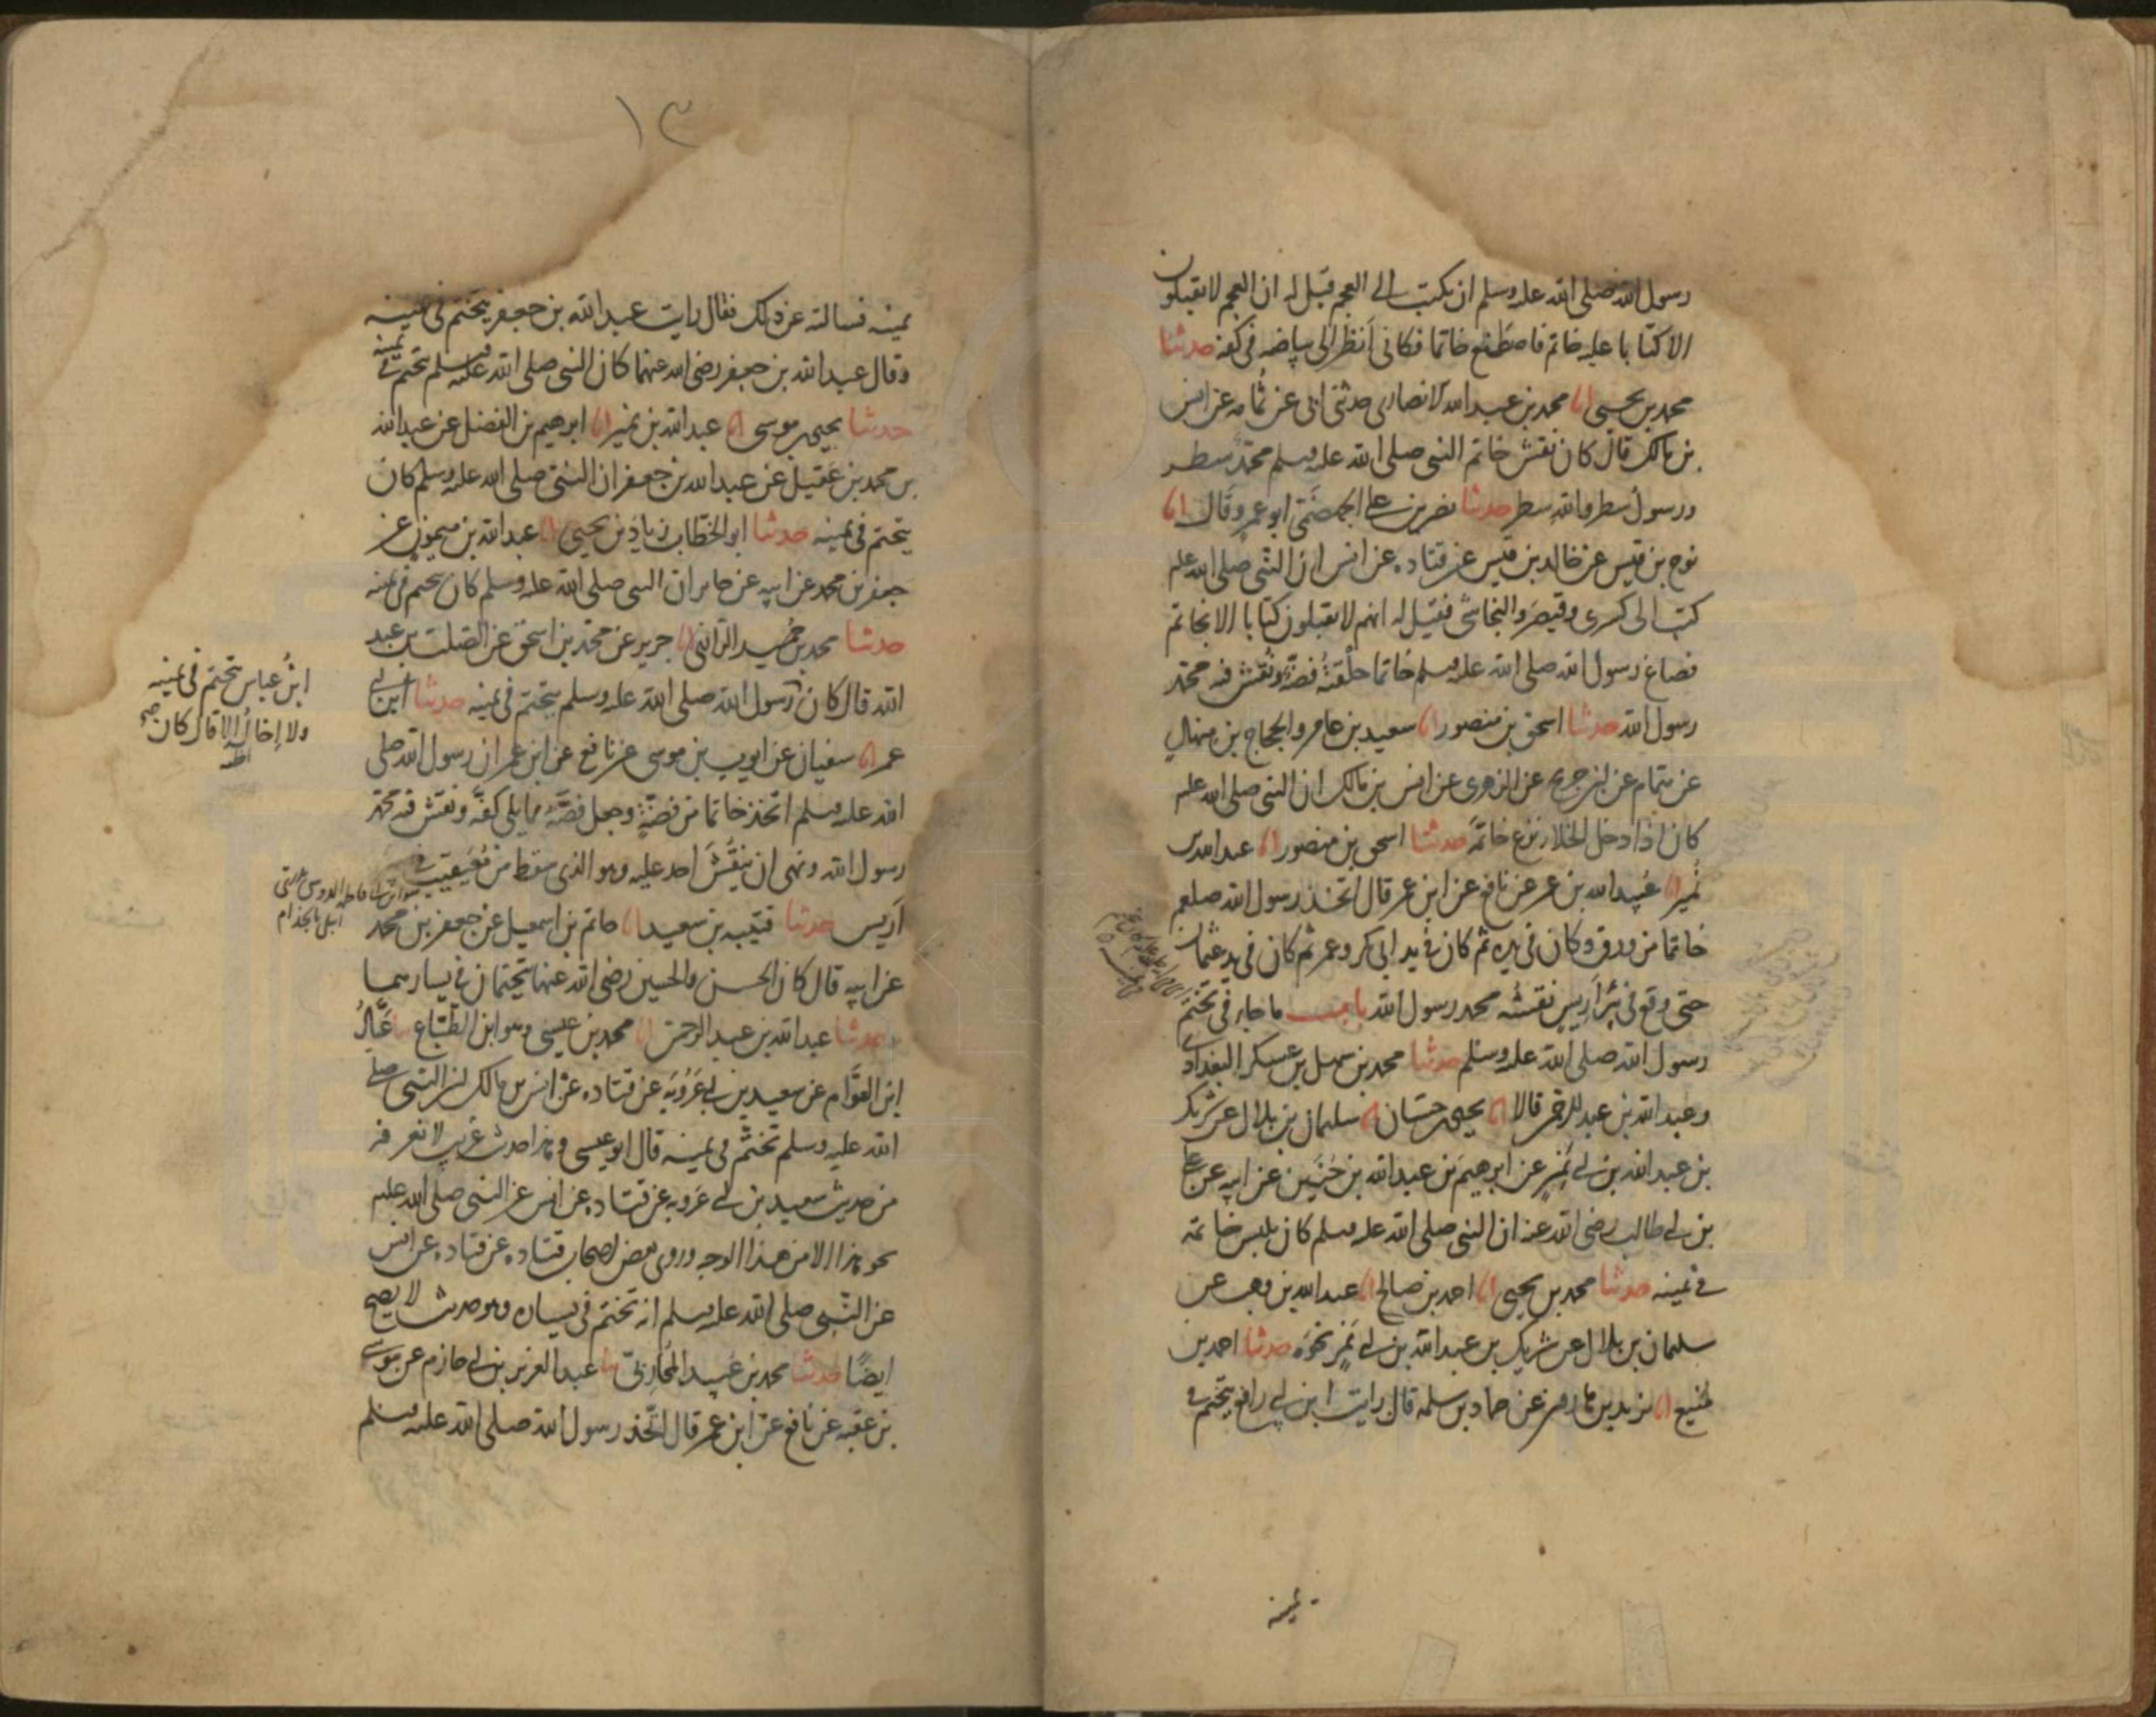 رسول الله صلى الله عليه وسلم ان يكتب الى العجم قيل له ان العجم لا يقبلون
الا كتابا عليه خاتم فاصطنع خاتما فكاني انظر الى بياضه في كفه حدثنا
محمد بن يحيى انا محمد بن عبد الله الانصاري حدثني ابي عن ثمامه عن انس
بن مالك قال كان نقش خاتم النبي صلى الله عليه وسلم محمد سطر
ورسول سطر والله سطر حدثنا نصر بن علي الجهضمي ابو عمرو قال انا
نوح بن قيس عن خالد بن قيس عن قتاده عن انس ان النبي صلى الله عليه
كتب الى كسرى وقيصر والنجاشي فقيل له انهم لا يقبلون كتابا الا بخاتم
فصاغ رسول الله صلى الله عليه وسلم خاتما حلقته فضة ونقش فيه محمد
رسول الله حدثنا اسحق بن منصور انا سعيد بن عامر والحجاج بن منهال
عن همام عن ابن جريج عن الزهري عن انس بن مالك ان النبي صلى الله عليه
كان اذا دخل الخلاء نزع خاتمه حدثنا اسحق بن منصور انا عبد الله بن
نمير انا عبيد الله بن عمر عن نافع عن ابن عمر قال اتخذ رسول الله صلعم
خاتما من ورق وكان في يده ثم كان في يد ابي بكر وعمر ثم كان في يد عثمان
حتى وقع في بئر اريس نقشه محمد رسول الله باب ما جاء في تختم
رسول الله صلى الله عليه وسلم حدثنا محمد بن سهل بن عسكر البغدادي
وعبد الله بن عبد الرحمن قالا انا يحيى بن حسان انا سليمان بن بلال عن شريك
بن عبد الله بن ابي نمر عن ابرهيم بن عبد الله بن حنين عن ابيه عن علي
بن ابي طالب رضي الله عنه ان النبي صلى الله عليه وسلم كان يلبس خاتمه
في يمينه حدثنا محمد بن يحيى انا احمد بن صالح انا عبد الله بن وهب عن
سليمان بن بلال عن شريك بن عبد الله بن ابي نمر نحوه حدثنا احمد بن
منيع انا يزيد بن هارون عن حماد بن سلمه قال رايت ابن ابي رافع يتختم في
يمينه
١٣
يمينه فسالته عن ذلك فقال رايت عبد الله بن جعفر يتختم في يمينه
وقال عبد الله بن جعفر رضي الله عنهما كان النبي صلى الله عليه وسلم يتختم في يمينه
حدثنا يحيى بن موسى انا عبد الله بن نمير انا ابرهيم بن الفضل عن عبد الله
بن محمد بن عقيل عن عبد الله بن جعفر ان النبي صلى الله عليه وسلم كان
يتختم في يمينه حدثنا ابو الخطاب زياد بن يحيى انا عبد الله بن ميمون عن
جعفر بن محمد عن ابيه عن جابر ان النبي صلى الله عليه وسلم كان يتختم في يمينه
حدثنا محمد بن حميد الرازي انا جرير عن محمد بن اسحق عن الصلت بن عبد
الله قال كان رسول الله صلى الله عليه وسلم يتختم في يمينه حدثنا ابن ابي
ابن عباس يتختم في يمينه
ولا اخال الا قال كان صح
عمر انا سفيان عن ايوب بن موسى عن نافع عن ابن عمر ان رسول الله صلى
الله عليه وسلم اتخذ خاتما من فضة وجعل فصه مما يلي كفه ونقش فيه محمد
رسول الله ونهى ان ينقش احد عليه وهو الذي سقط من معيقيب في
اريس حدثنا قتيبه بن سعيد انا حاتم بن اسمعيل عن جعفر بن محمد
عن ابيه قال كان الحسن والحسين رضي الله عنهما يتختمان في يسارهما
حدثنا عبد الله بن عبد الرحمن انا محمد بن عيسى وهو ابن الطباع نا عباد
ابن العوام عن سعيد بن ابي عروبة عن قتاده عن انس بن مالك ان النبي صلى
الله عليه وسلم تختم في يمينه قال ابو عيسى وهذا حديث غريب لا نعرفه
من حديث سعيد بن ابي عروبه عن قتاده عن انس عن النبي صلى الله عليه
نحو هذا الا من هذا الوجه وروى بعض اصحاب قتاده عن قتاده عن انس
عن النبي صلى الله عليه وسلم انه تختم في يساره وهو حديث لا يصح
ايضا حدثنا محمد بن عبيد المحاربي نا عبد العزيز بن ابي حازم عن موسى
بن عقبه عن نافع عن ابن عمر قال اتخذ رسول الله صلى الله عليه وسلم